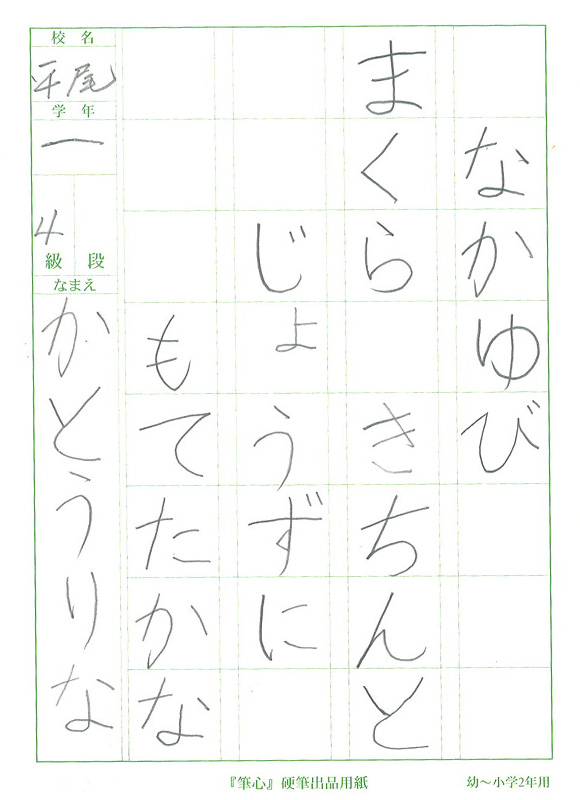 なかゆび
まくら　きちんと
じょうずに
もてたかな
校名
平尾
学年
一
4
級　段
なまえ
かとうりな
『筆心』硬筆出品用紙
幼～小学2年用